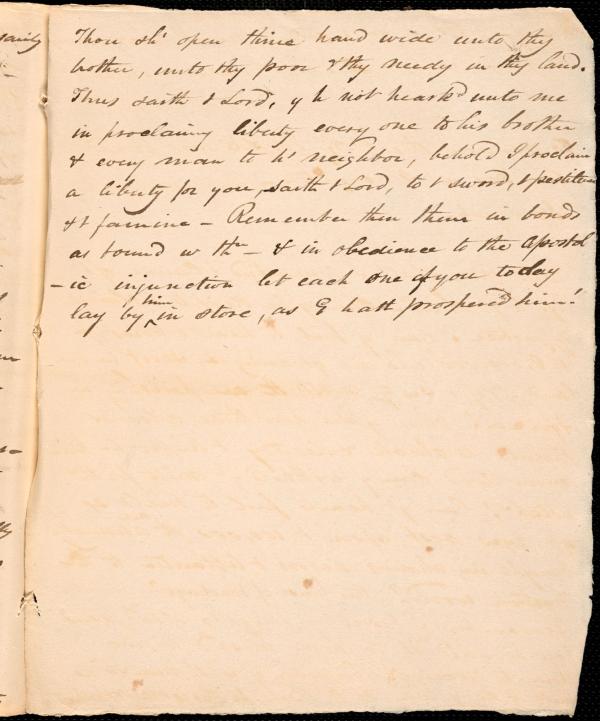 Thou sh' open thine hand wide unto thy
brother, unto thy poor & thy needy in thy land.
Thus saith t Lord, y h not heark'd unto me
in proclaimg liberty every one to his brother
& every man to h' neighbor, behold I proclaim
a liberty for you, saith t Lord, to t sword, t pestilence
& t famine – Remember then them in bonds
as bound w thm – & in obedience to the Apostol
-ic injunction let each one of you today
lay by him in store, as G hath prospered him!